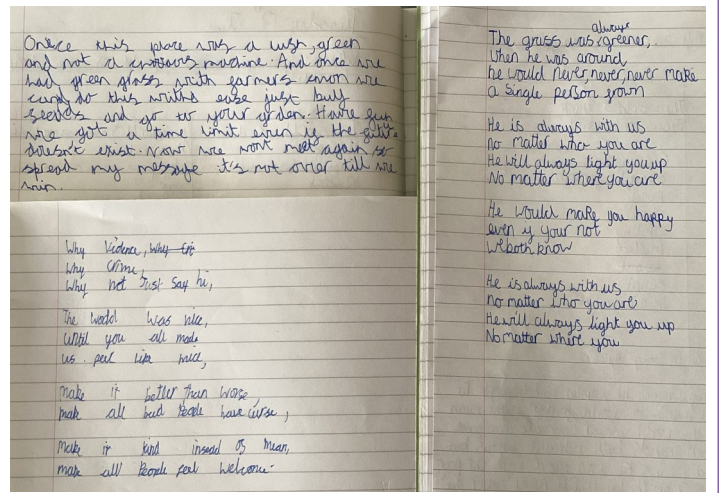 Onece this place was a lush, green
and not a machine. And once we
had green grass with farmers know we
can do this with ease just buy
seeds and go to your garden. Have fun
we got a time limit even if the
doesn't exist. Now we wont meet again so
spread my message it's not over till we
win.
Why Violence,
Why crime,
Why not Just Say hi,
The world was nice,
until you all made
us feel like mice,
Make it better than worse,
make all bad People have curse,
Make it kind insead of mean,
make all People feel Welcome.
always
The grass was greener,
When he was around
he would never, never, never make
a single person frown
He is always with us
no matter who you are
He will always light you up
No matter where you are
He would make you happy
even if your not
we both know
He is always with us
no matter who you are
He will always light you up
No matter where you